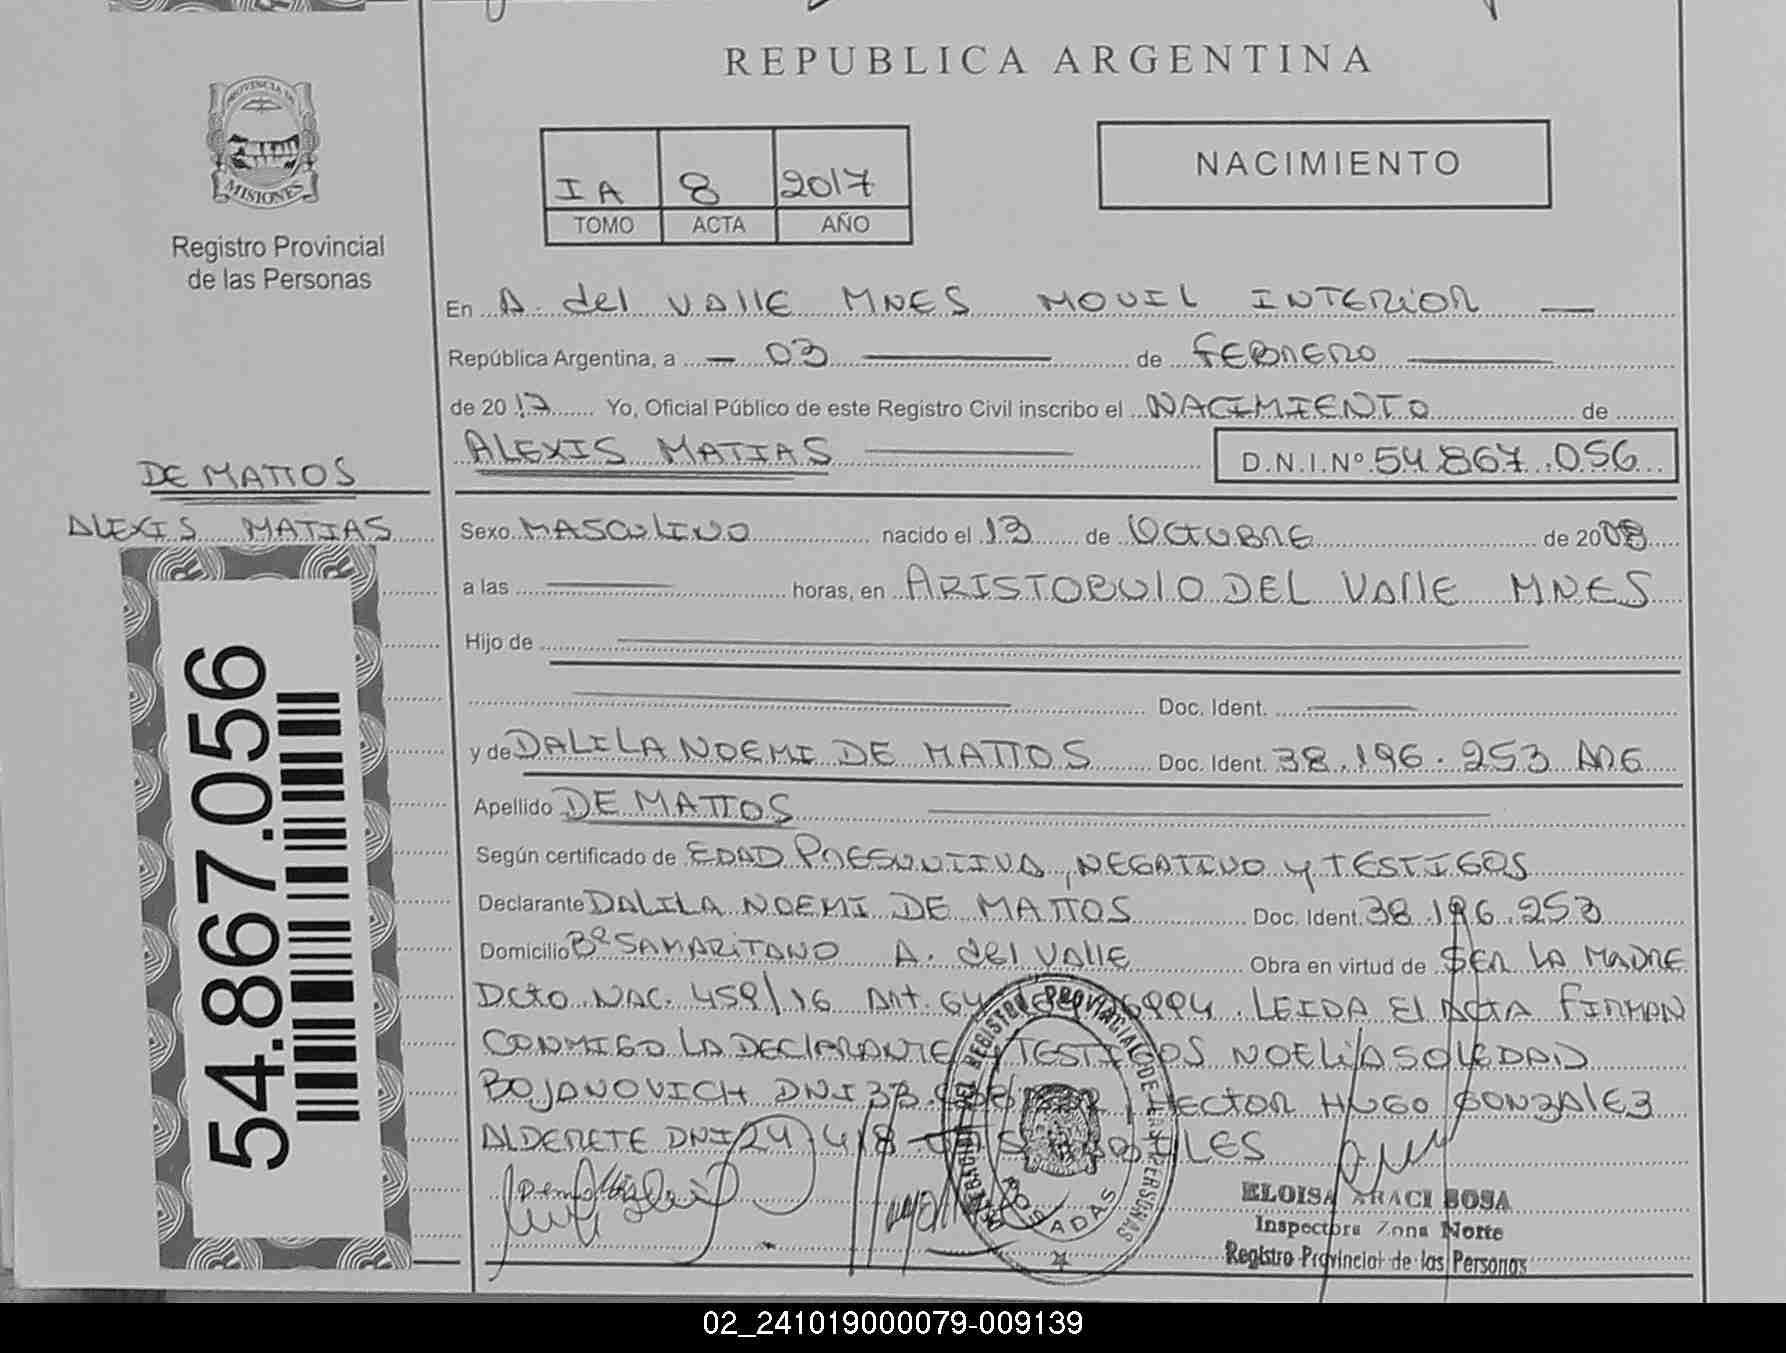 REPUBLICA ARGENTINA
PROVINCIA DE
MISIONES
Registro Provincial
de las Personas
NACIMIENTO
IA 8 2017
TOMO ACTA AÑO
En A. del VAllE MNES MOVIL INTERIOR
República Argentina, a 03 de FEBRERO
de 2017 Yo, Oficial Público de este Registro Civil inscribo el NACIMIENTO de
ALEXIS MATIAS D.N.I.Nº 54.867.056
DE MATTOS
ALEXIS MATIAS
Sexo MASCULINO nacido el 13 de OCTUBRE de 2008
a las horas, en ARISTOBULO DEL VAllE MNES
Hijo de
Doc. Ident.
y de DALILA NOEMI DE MATTOS Doc. Ident. 38.196.253 ARG
Apellido DE MATTOS
Según certificado de EDAD PRESUNTIVA, NEGATIVO y TESTIGOS
Declarante DALILA NOEMI DE MATTOS Doc. Ident. 38.196.253
Domicilio Bº SAMARITANO A. del VAllE Obra en virtud de SER LA MADRE
Dcto NAC. 459/16 Art. 64 LEIDA El ACTA FIRMAN
CONMIGO LA DEClARANTE y TESTIGOS NOELIA SOLEDAD
BOJANOVICH DNI HECTOR HUGO GONZALEZ
ALDERETE DNI 24.418 HABILES
54.867.056
REGISTRO PROVINCIAL DE LAS PERSONAS
POSADAS
ELOISA ARACI SOSA
Inspectora Zona Norte
Registro Provincial de las Personas
02_241019000079-009139